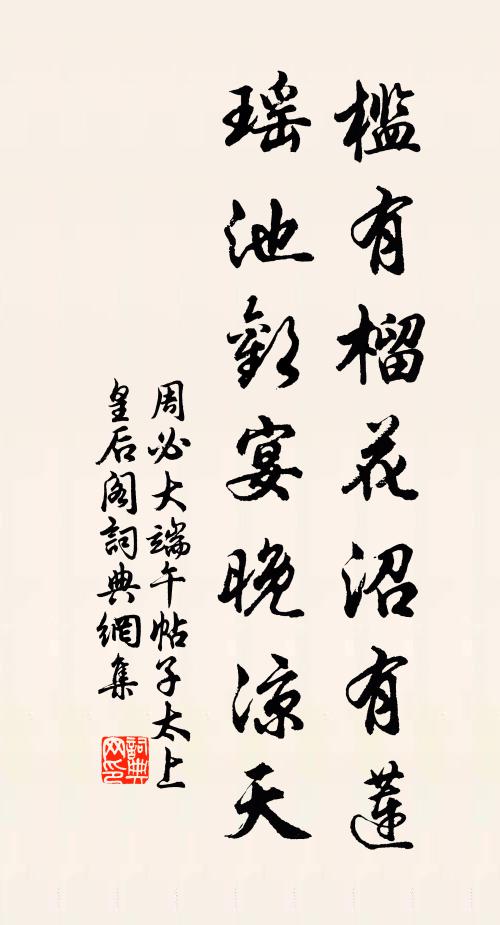 槛有榴花沼有蓮
瑶池歡宴晚凉天
周必大端午帖子太上
皇后阁詞典網集
詞典網印